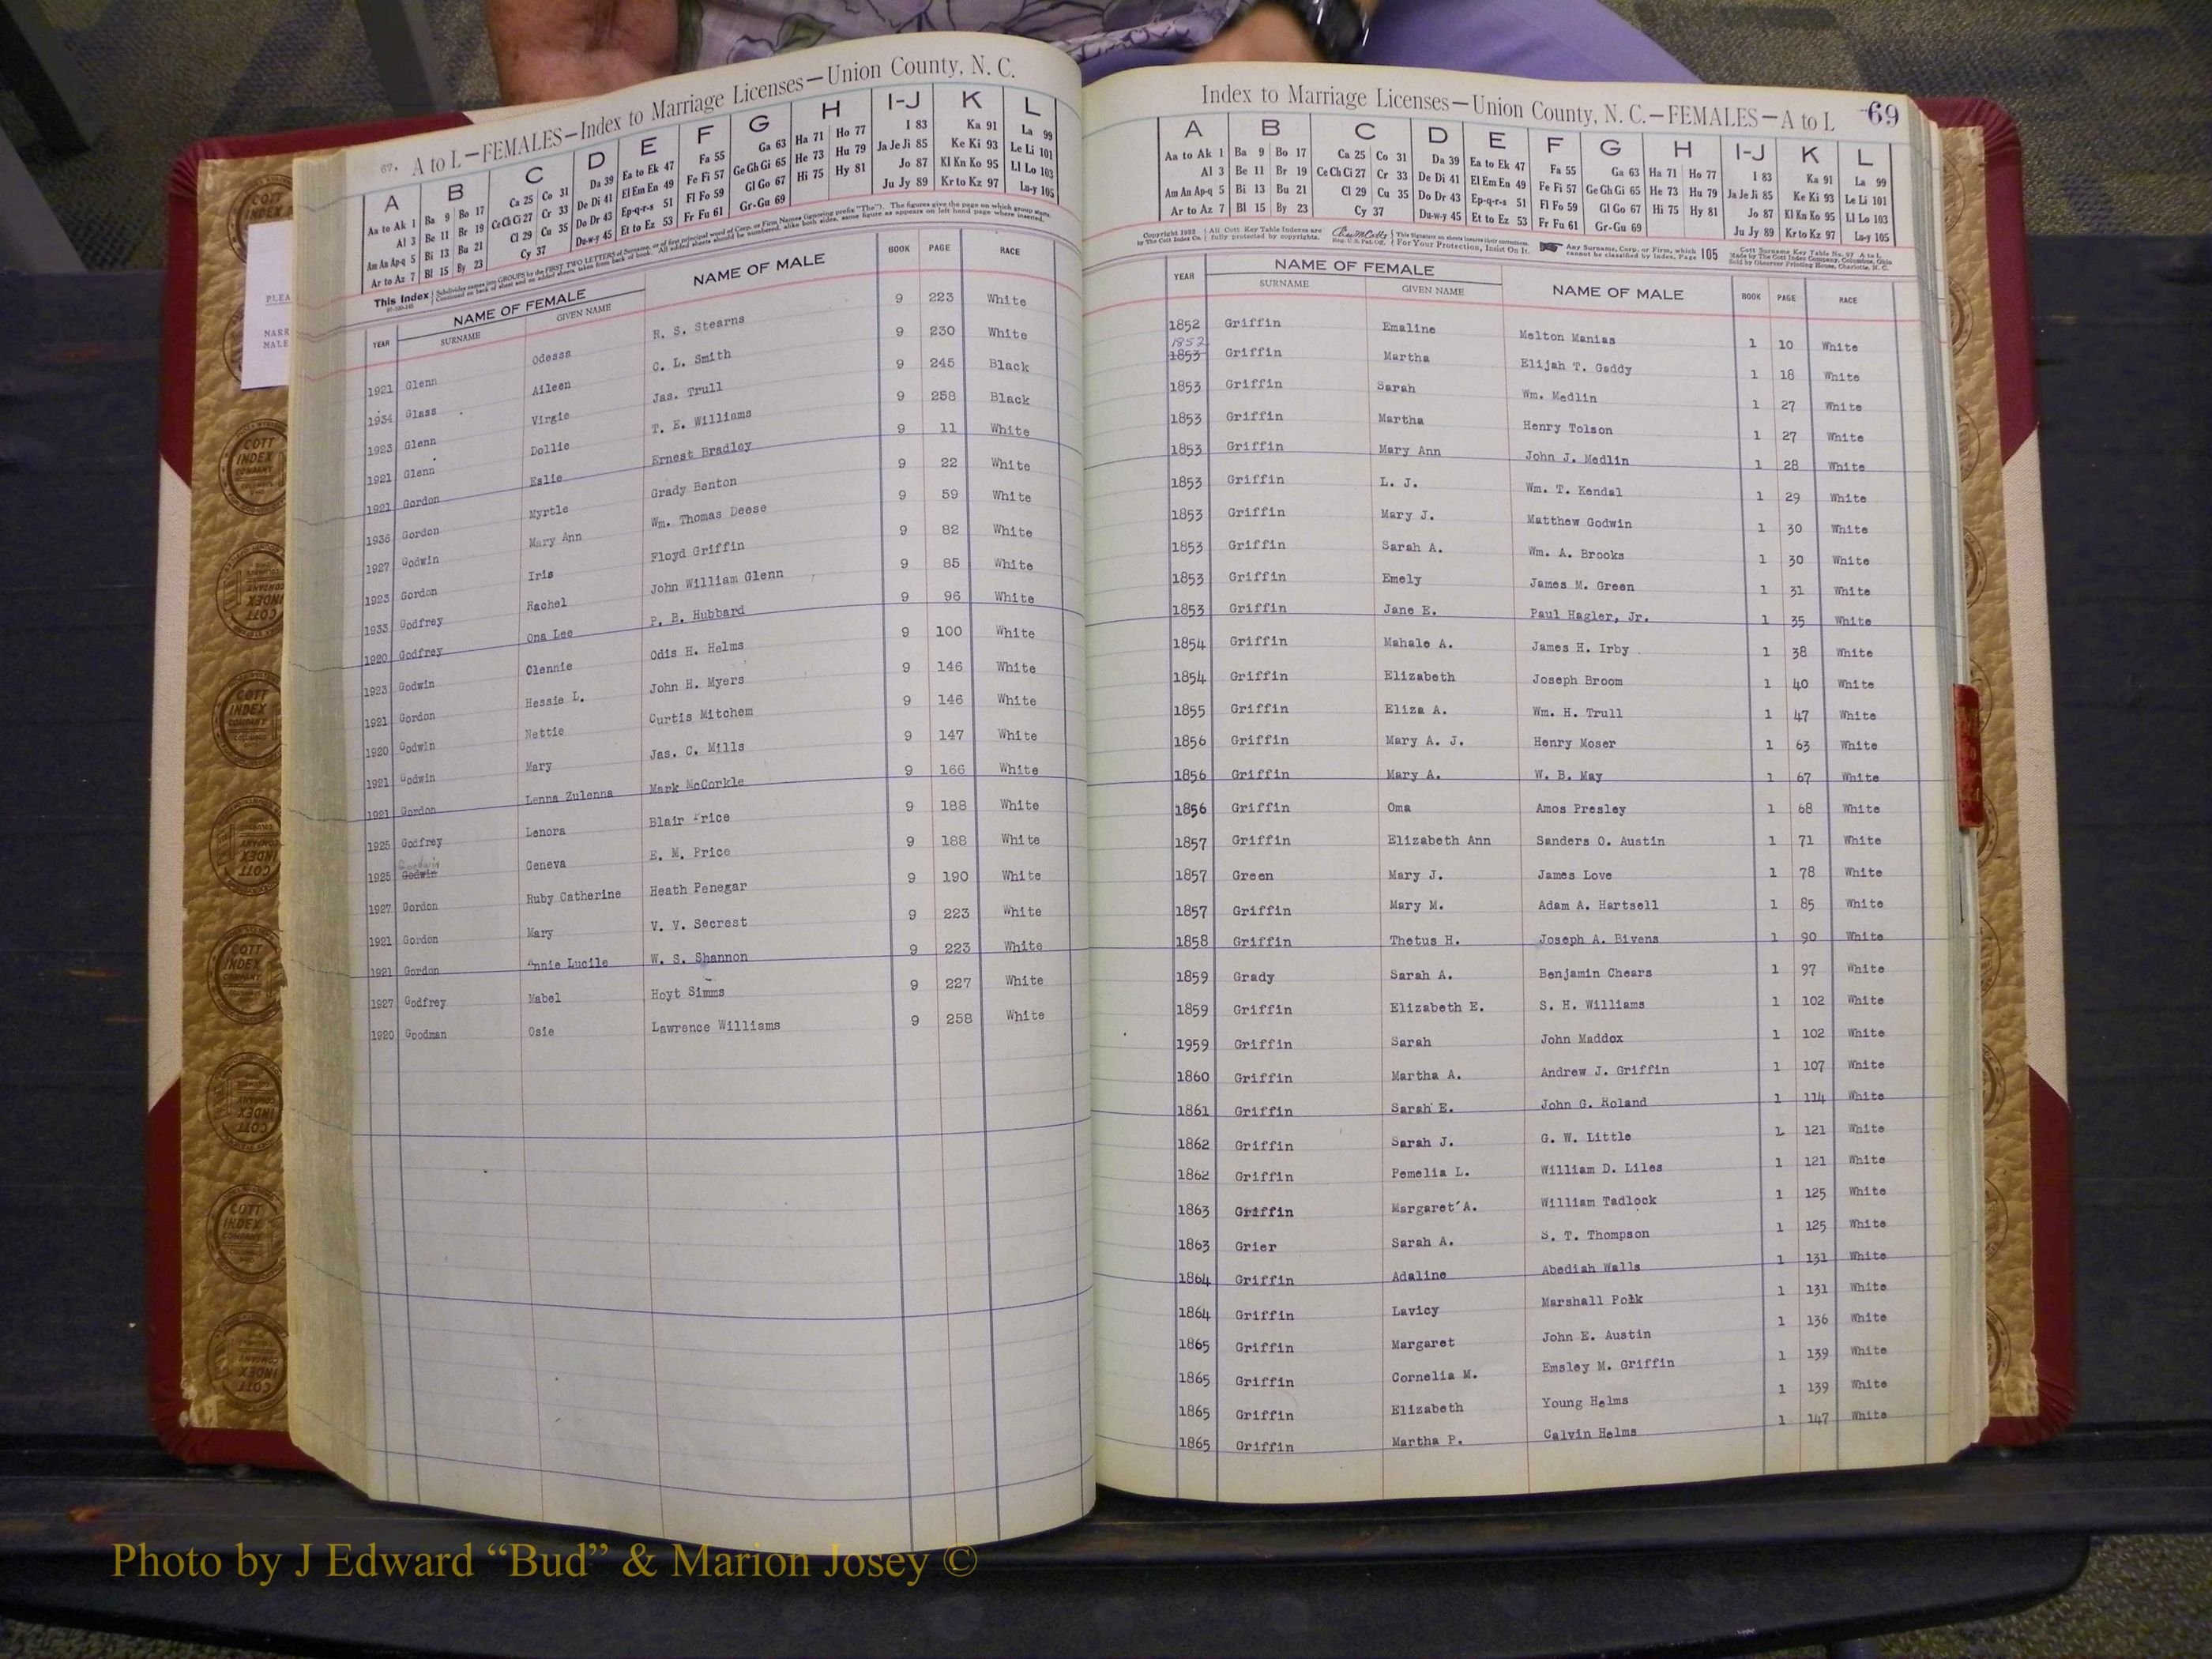 67. A to L—FEMALES—Index to Marriage Licenses—Union County, N. C.
A B C D E F G H I-J K L
Aa to Ak 1 Ba 9 Bo 17 Ca 25 Co 31 Da 39 Ea to Ek 47 Fa 55 Ga 63 Ha 71 Ho 77 I 83 Ka 91 La 99
Al 3 Be 11 Br 19 Ce Ch Ci 27 Cr 33 De Di 41 El Em En 49 Fe Fi 57 Ge Gh Gi 65 He 73 Hu 79 Ja Je Ji 85 Ke Ki 93 Le Li 101
Am An Ap-q 5 Bi 13 Bu 21 Cl 29 Cu 35 Do Dr 43 Ep-q-r-s 51 Fl Fo 59 Gl Go 67 Hi 75 Hy 81 Jo 87 Kl Kn Ko 95 Ll Lo 103
Ar to Az 7 Bl 15 By 23 Cy 37 Du-w-y 45 Et to Ez 53 Fr Fu 61 Gr-Gu 69 Ju Jy 89 Kr to Kz 97 Lu-y 105
This Index
YEAR NAME OF FEMALE NAME OF MALE BOOK PAGE RACE
SURNAME GIVEN NAME
1921 Glenn Odessa R. S. Stearns 9 223 White
1934 Glass Aileen C. L. Smith 9 230 White
1923 Glenn Virgie Jas. Trull 9 245 Black
1921 Glenn Dollie T. E. Williams 9 258 Black
1921 Gordon Eslie Ernest Bradley 9 11 White
1936 Gordon Myrtle Grady Benton 9 22 White
1927 Godwin Mary Ann Wm. Thomas Deese 9 59 White
1923 Gordon Iris Floyd Griffin 9 82 White
1933 Godfrey Rachel John William Glenn 9 85 White
1920 Godfrey Ona Lee P. B. Hubbard 9 96 White
1923 Godwin Clennie Odis H. Helms 9 100 White
1921 Gordon Hessie L. John H. Myers 9 146 White
1920 Godwin Nettie Curtis Mitchem 9 146 White
1921 Godwin Mary Jas. C. Mills 9 147 White
1921 Gordon Lenna Zulenna Mark McCorkle 9 166 White
1925 Godfrey Lenora Blair Price 9 188 White
1925 Godwin Geneva E. M. Price 9 188 White
1927 Gordon Ruby Catherine Heath Penegar 9 190 White
1921 Gordon Mary V. V. Secrest 9 223 White
1921 Gordon Annie Lucile W. S. Shannon 9 223 White
1927 Godfrey Mabel Hoyt Simms 9 227 White
1920 Goodman Osie Lawrence Williams 9 258 White
Index to Marriage Licenses—Union County, N. C.—FEMALES—A to L 69
A B C D E F G H I-J K L
Aa to Ak 1 Ba 9 Bo 17 Ca 25 Co 31 Da 39 Ea to Ek 47 Fa 55 Ga 63 Ha 71 Ho 77 I 83 Ka 91 La 99
Al 3 Be 11 Br 19 Ce Ch Ci 27 Cr 33 De Di 41 El Em En 49 Fe Fi 57 Ge Gh Gi 65 He 73 Hu 79 Ja Je Ji 85 Ke Ki 93 Le Li 101
Am An Ap-q 5 Bi 13 Bu 21 Cl 29 Cu 35 Do Dr 43 Ep-q-r-s 51 Fl Fo 59 Gl Go 67 Hi 75 Hy 81 Jo 87 Kl Kn Ko 95 Ll Lo 103
Ar to Az 7 Bl 15 By 23 Cy 37 Du-w-y 45 Et to Ez 53 Fr Fu 61 Gr-Gu 69 Ju Jy 89 Kr to Kz 97 Lu-y 105
Any Surname, Corp. or Firm, which cannot be classified by Index, Page 105
YEAR NAME OF FEMALE NAME OF MALE BOOK PAGE RACE
SURNAME GIVEN NAME
1852 Griffin Emaline Melton Manias 1 10 White
1852
1853 Griffin Martha Elijah T. Gaddy 1 18 White
1853 Griffin Sarah Wm. Medlin 1 27 White
1853 Griffin Martha Henry Tolson 1 27 White
1853 Griffin Mary Ann John J. Medlin 1 28 White
1853 Griffin L. J. Wm. T. Kendal 1 29 White
1853 Griffin Mary J. Matthew Godwin 1 30 White
1853 Griffin Sarah A. Wm. A. Brooks 1 30 White
1853 Griffin Emely James M. Green 1 31 White
1853 Griffin Jane E. Paul Hagler, Jr. 1 35 White
1854 Griffin Mahale A. James H. Irby 1 38 White
1854 Griffin Elizabeth Joseph Broom 1 40 White
1855 Griffin Eliza A. Wm. H. Trull 1 47 White
1856 Griffin Mary A. J. Henry Moser 1 63 White
1856 Griffin Mary A. W. B. May 1 67 White
1856 Griffin Oma Amos Presley 1 68 White
1857 Griffin Elizabeth Ann Sanders O. Austin 1 71 White
1857 Green Mary J. James Love 1 78 White
1857 Griffin Mary M. Adam A. Hartsell 1 85 White
1858 Griffin Thetus H. Joseph A. Bivens 1 90 White
1859 Grady Sarah A. Benjamin Chears 1 97 White
1859 Griffin Elizabeth E. S. H. Williams 1 102 White
1959 Griffin Sarah John Maddox 1 102 White
1860 Griffin Martha A. Andrew J. Griffin 1 107 White
1861 Griffin Sarah E. John G. Roland 1 114 White
1862 Griffin Sarah J. G. W. Little 1 121 White
1862 Griffin Pemelia L. William D. Liles 1 121 White
1863 Griffin Margaret A. William Tadlock 1 125 White
1863 Grier Sarah A. S. T. Thompson 1 125 White
1864 Griffin Adaline Abediah Walls 1 131 White
1864 Griffin Lavicy Marshall Polk 1 131 White
1865 Griffin Margaret John E. Austin 1 136 White
1865 Griffin Cornelia M. Emsley M. Griffin 1 139 White
1865 Griffin Elizabeth Young Helms 1 139 White
1865 Griffin Martha P. Calvin Helms 1 147 White
COTT INDEX COMPANY
Photo by J Edward “Bud” & Marion Josey ©